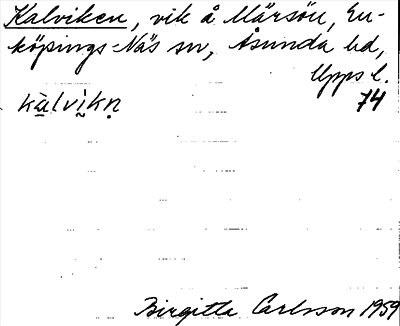 Kalviken, vik å Märsön, En-
köpings-Näs sn, Åsunda hd,
Upps l.
kàlvìkn 74
Birgitta Carlsson 1959